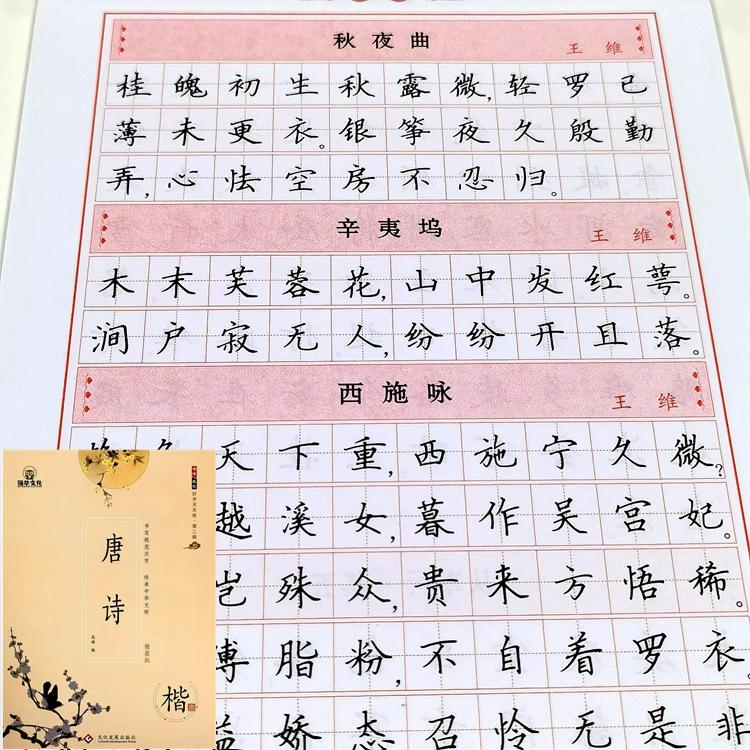 秋夜曲
王维
桂魄初生秋露微,轻罗已
薄未更衣。银筝夜久殷勤
弄,心怯空房不忍归。
辛夷坞
王维
木末芙蓉花,山中发红萼。
涧户寂无人,纷纷开且落。
西施咏
王维
天下重,西施宁久微?
越溪女,暮作吴宫妃。
岂殊众,贵来方悟稀。
傅脂粉,不自着罗衣。
益娇态,君怜无是非
强华文化
唐诗
书写规范汉字 传承中华文明
精装版
楷
文化发展出版社
Cultural Development Press